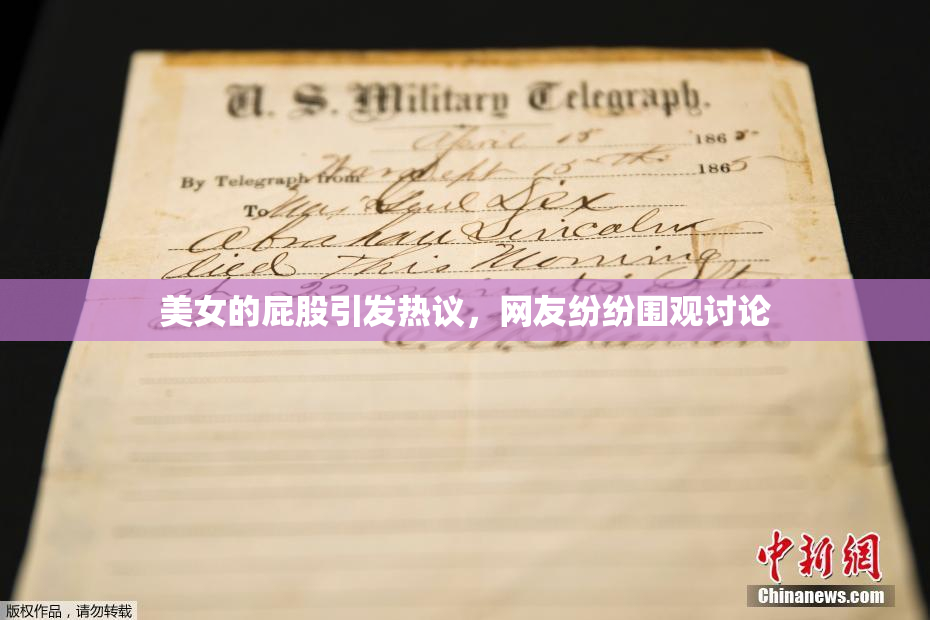 U. S. Military Telegraph.
April 15 1865
By Telegraph from War Dept 15th 1865
To Maj Genl Dix
Abraham Lincoln
died This Morning
at 22 minutes after
美女的屁股引发热议，网友纷纷围观讨论
中新网
Chinanews.com
版权作品，请勿转载